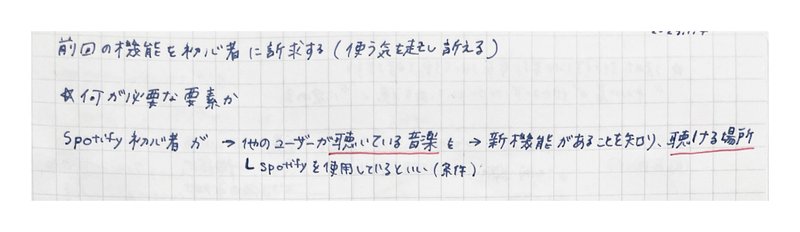 前回の機能を初心者に訴求する(使う気を起こし訴える)
☆何が必要な要素か
Spotify初心者が → 他のユーザーが聴いている音楽を → 新機能があることを知り、聴ける場所
└ spotifyを使用しているといい(条件)